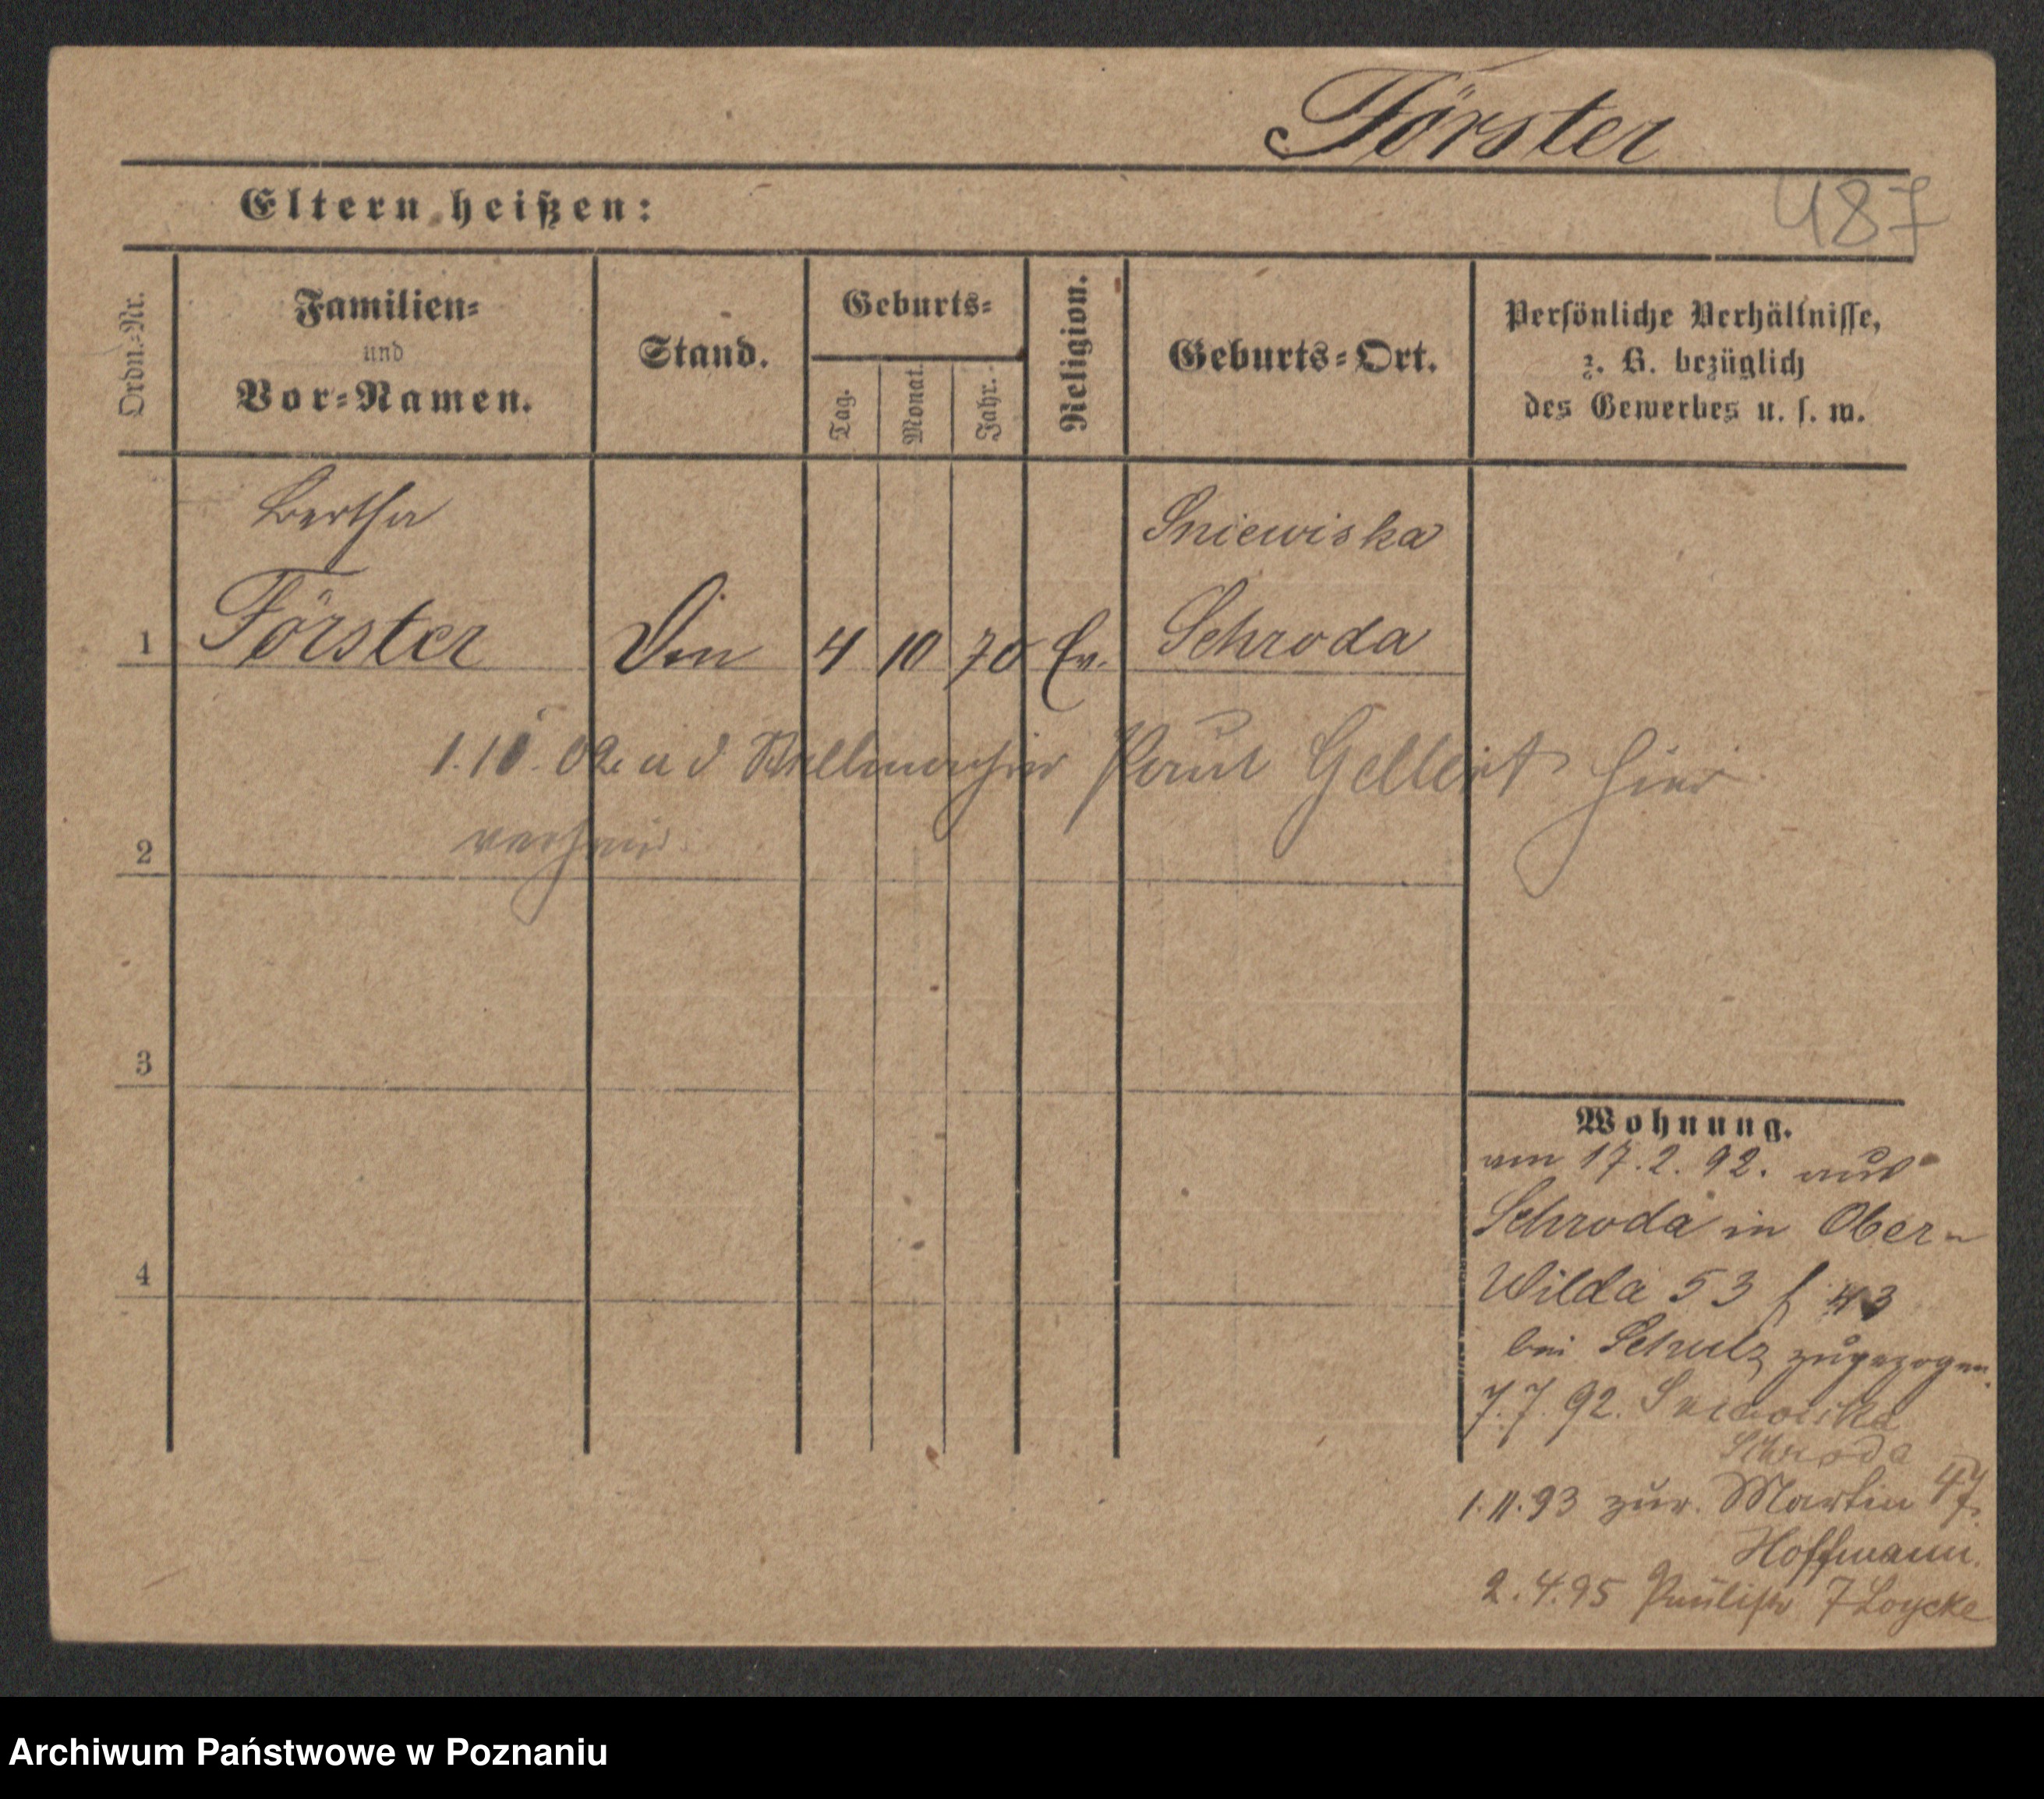 Förster
487
Eltern heißen:
Ordn.-Nr.
Familien-
und
Vor-Namen.
Stand.
Geburts-
Tag.
Monat.
Jahr.
Religion.
Geburts-Ort.
Persönliche Verhältnisse,
z. B. bezüglich
des Gewerbes u. s. w.
Bertha
Sniewiska
1 Förster 4 10 70 Ev. Schroda
1.10.02 a d Stellmacher Paul Gellert hier
2 verheir.
3
4
Wohnung.
am 17.2.92. aus
Schroda in Ober-
Wilda 53 43
bei Schulz zugezogen.
7.7.92. Sniewiska
Schroda
1.11.93 zur. Martin 47.
Hoffmann.
2.4.95 Paulistr 7 Loycke
Archiwum Państwowe w Poznaniu